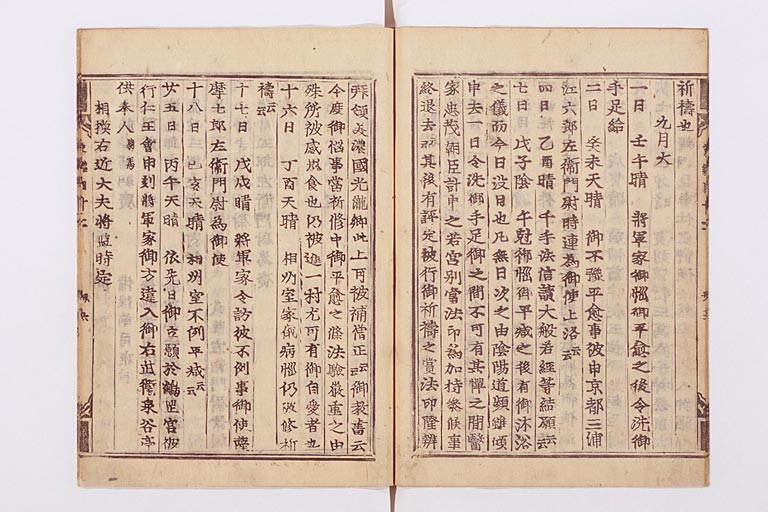 祈禱也
九月大
一日 壬午晴 將軍家御惱御平愈之後令洗御
手足給
二日 癸未天晴 御不豫平愈事被申京都三浦
江六郎左衛門尉時連為御使上洛云云
四日 乙酉晴 千手法信讀大般若經等結願云云
七日 戊子陰 午尅御惱御平減之後有御沐浴
之儀而今日沒日也凡無日次之由陰陽道頻雖傾
申去一日令洗御手足御之間不可有其憚之間醫
家忠茂朝臣計申之若宮別當法印為加持祭候事
終退去云云其後有評定被行御祈禱之賞法印隆辨
拜領美濃國光瀧鄉此上可被補僧正云云御教書云
今度御惱事當祈修中御平愈之條法驗嚴重之由
殊所被感思食也仍被進一村尤可有御自愛者也
十六日 丁酉天晴 相州室家俄病惱仍被修祈
禱云云
十七日 戊戌晴 將軍家令訪被不例事御使薩
摩七郎左衛門尉為御使
十八日 己亥天晴 相州室不例平減云云
廿五日 丙午天晴 依先日御立願於鶴岡宮被
行仁王會申刻將軍家御方違入御右武衛泉谷亭
供奉人
相摸右近大夫將監時定